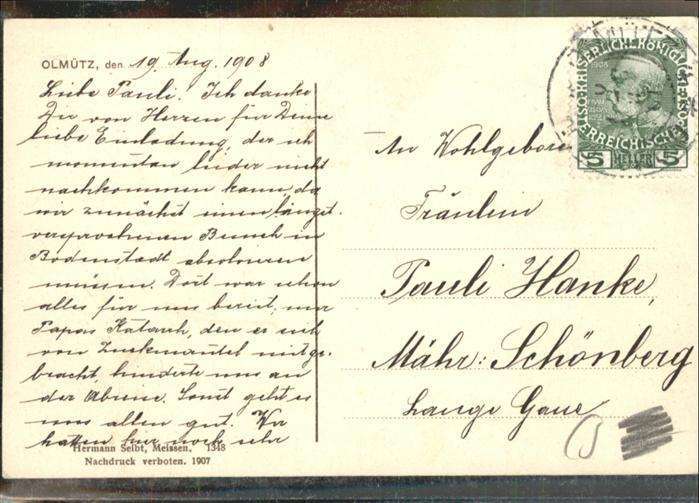 OLMÜTZ, den 19 Aug. 1908
Liebe Pauli! Ich danke
Dir von Herzen für Deine
liebe Einladung, der ich
momentan leider nicht
nachkommen kann, da
wir zunächst einen längst
versprochenen Besuch in
Bodenstadt absolvieren
müssen. Dort war schon
alles für uns bereit, nur
Papas Katarrh, den er sich
von Zuckmantel mitge-
bracht, hinderte uns an
der Abreise. Sonst geht es
uns allen gut. Wir
hatten hier noch sehr
Hermann Seibt, Meissen. 1348
Nachdruck verboten. 1907
An Wohlgeboren
Fräulein
Pauli Hanke,
Mähr: Schönberg
Lange Gasse
5 HELLER 5